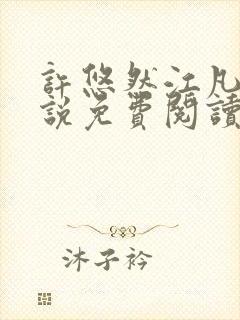 許悠然江凡
說免費閱讀
沐子衿